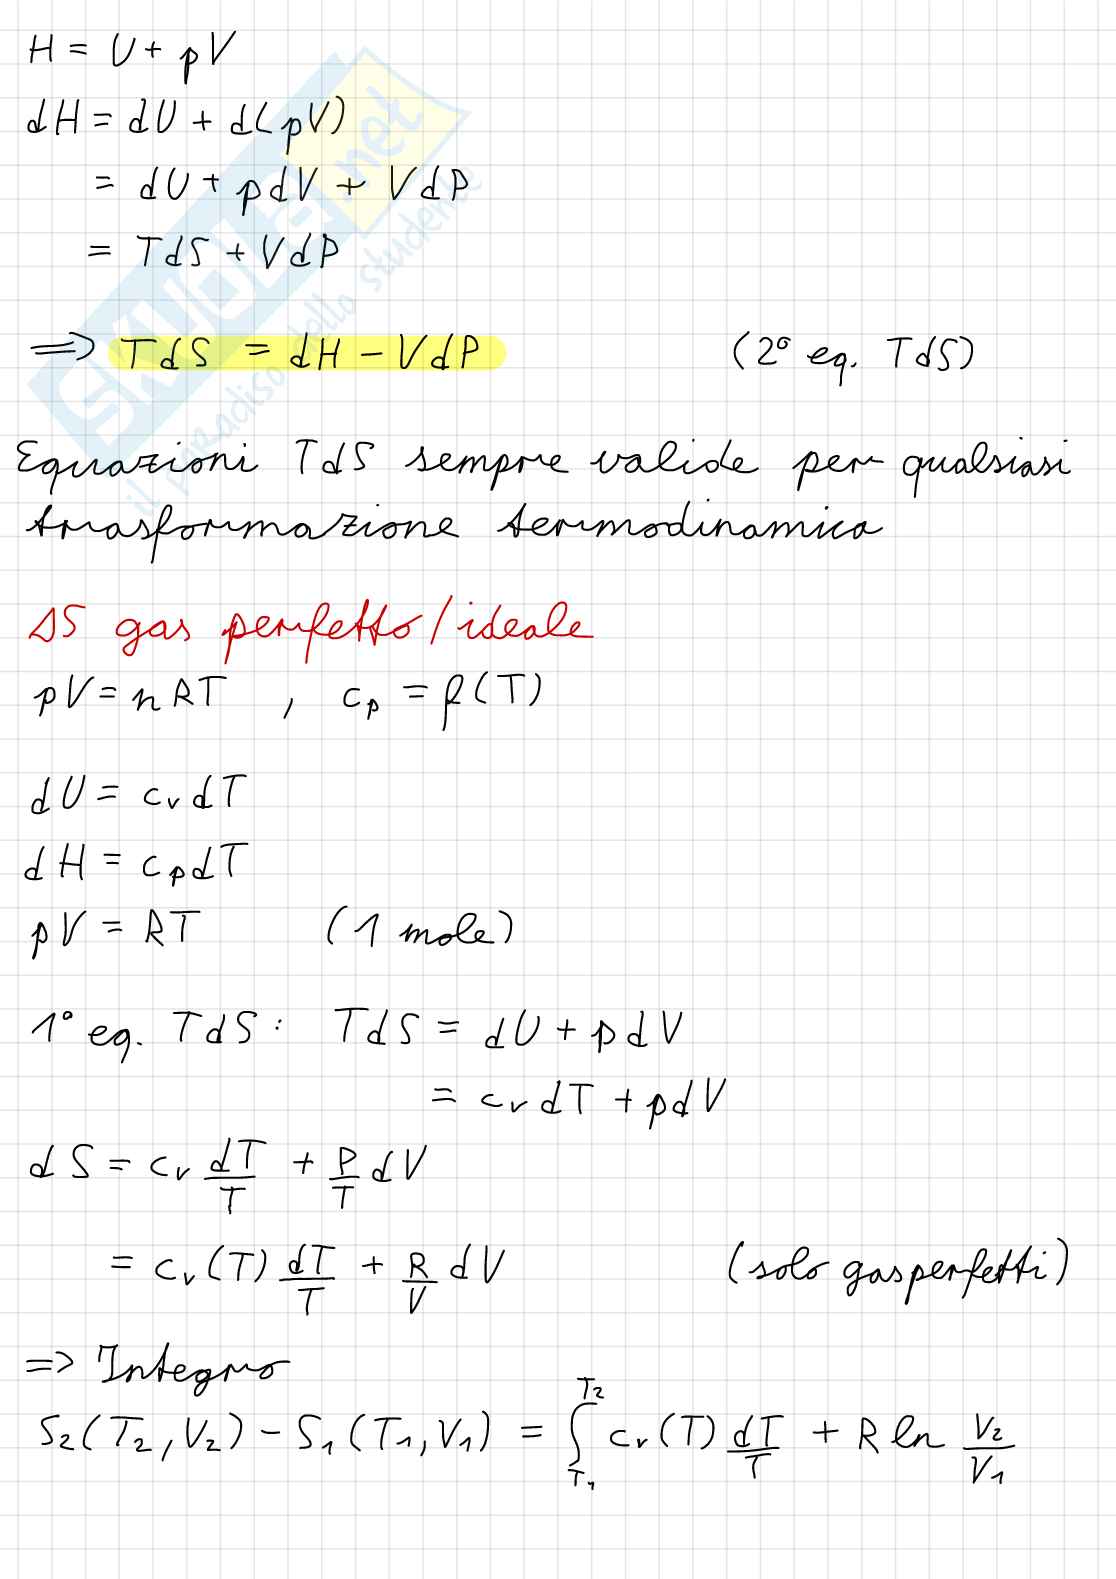 H = U + pV
dH = dU + d(pV)
= dU + pdV + VdP
= TdS + VdP
⟹ TdS = dH - VdP (2° eq. TdS)
Equazioni TdS sempre valide per qualsiasi
trasformazione termodinamica
ΔS gas perfetto/ideale
pV = nRT , c_p = f(T)
dU = c_v dT
dH = c_p dT
pV = RT (1 mole)
1° eq. TdS: TdS = dU + pdV
= c_v dT + pdV
dS = c_v dT/T + P/T dV
= c_v(T) dT/T + R/V dV (solo gas perfetti)
=> Integro
S₂(T₂,V₂) - S₁(T₁,V₁) = ∫_{T₁}^{T₂} c_v(T) dT/T + R ln V₂/V₁
SKUOLA.net
il paradiso dello studente